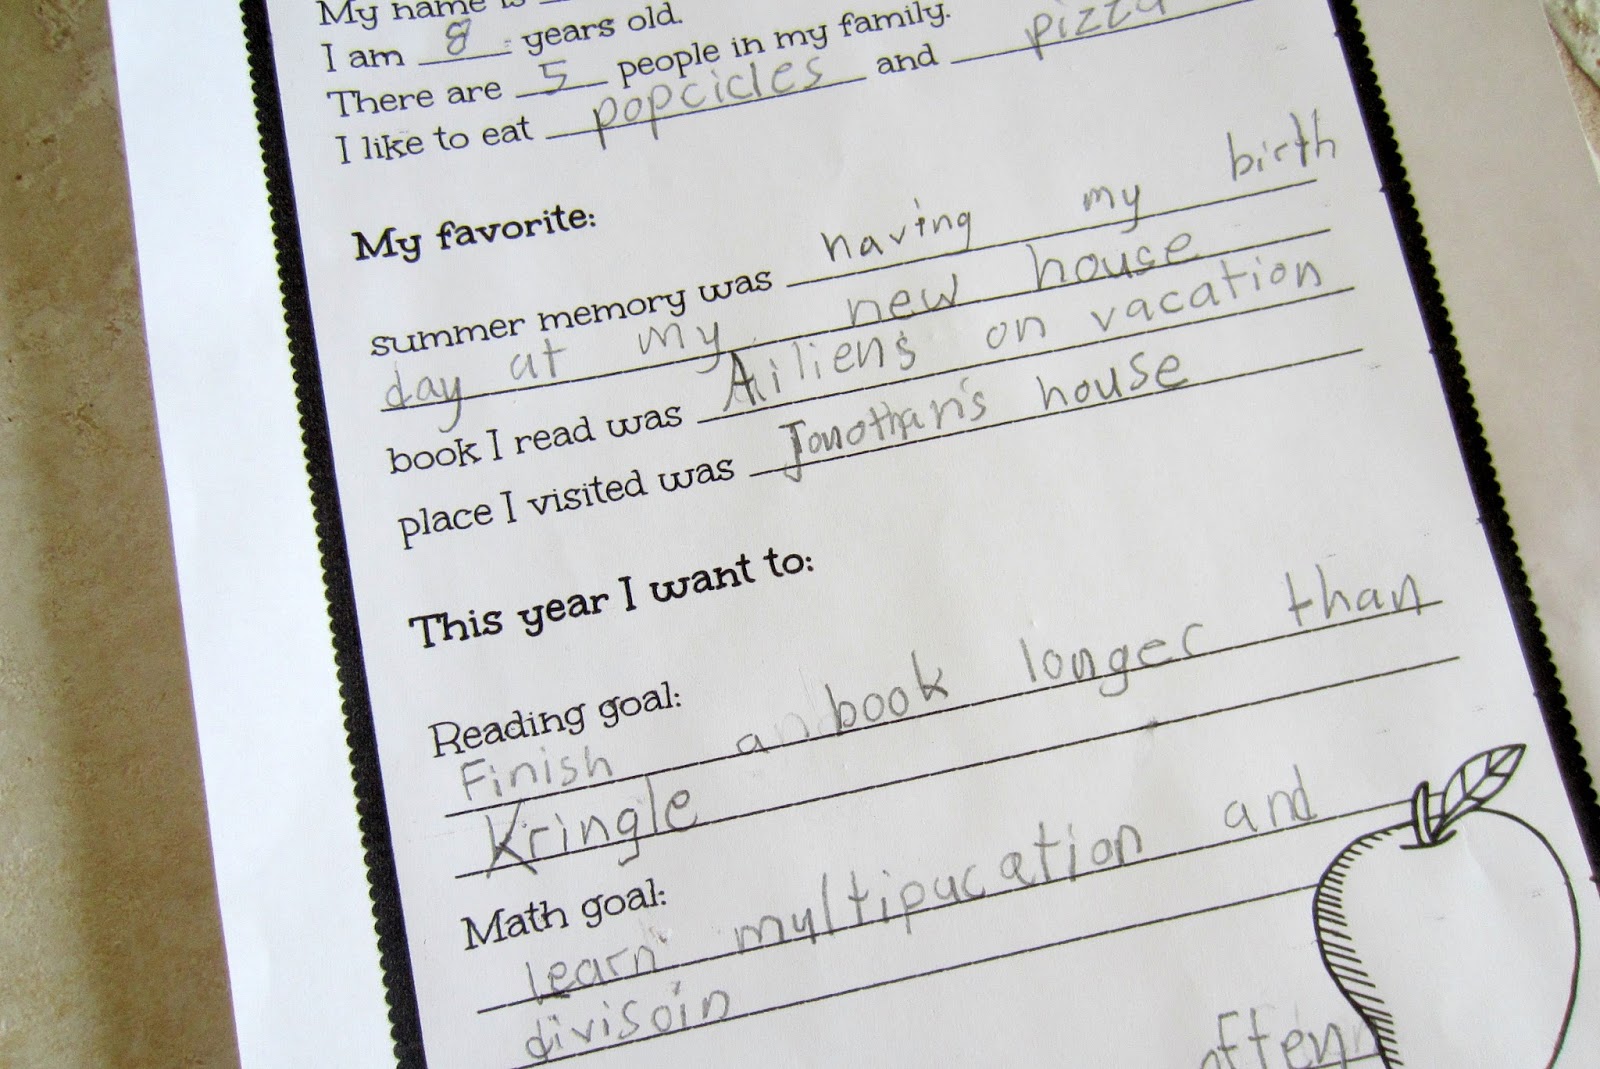 My name is
I am 8 years old.
There are 5 people in my family.
I like to eat popcicles and pizza
My favorite:
summer memory was having my birth
day at my new house
book I read was Ailiens on vacation
place I visited was Jonothan's house
This year I want to:
Reading goal:
Finish a book longer than
Kringle
Math goal:
learn multipucation and
divisoin
often